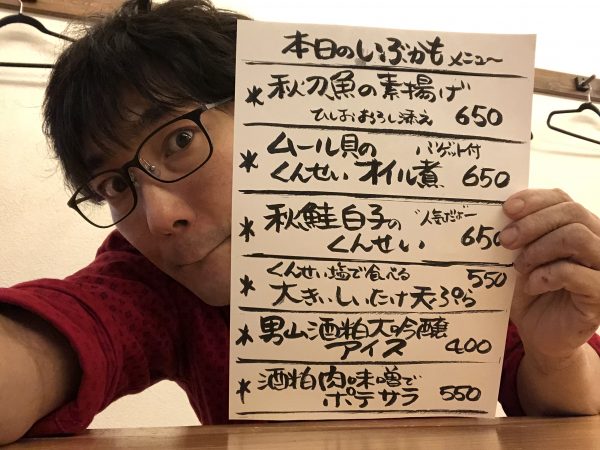 本日のいぶかもメニュー
*秋刀魚の素揚げ
ひしおおろし添え 650
*ムール貝の バゲット付
くんせいオイル煮 650
*秋鮭白子の "人気だよー
くんせい 650
くんせい塩で食べる 550
*大きいしいたけ天ぷら
*男山酒粕大吟醸
アイス 400
*酒粕肉味噌で
ポテサラ 550